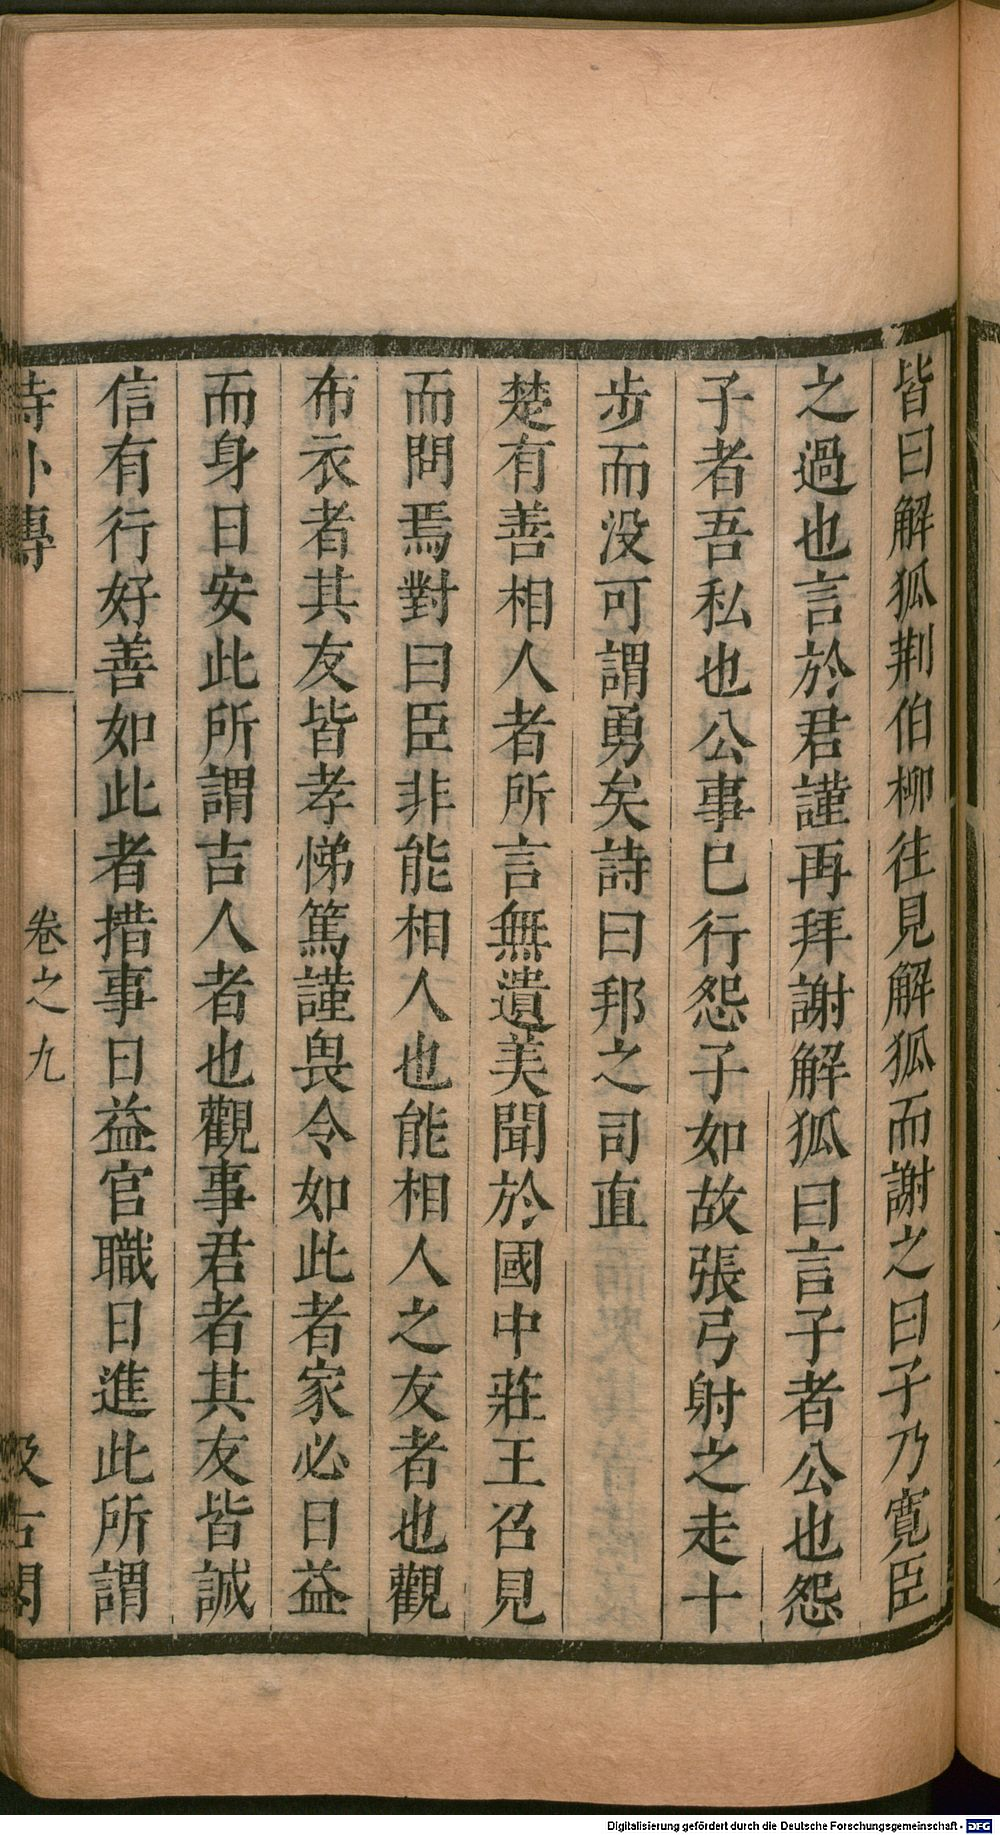 皆曰解狐荆伯柳往見解狐而謝之曰子乃寬臣
之過也言於君謹再拜謝解狐曰言子者公也怨
子者吾私也公事已行怨子如故張弓射之走十
步而没可謂勇矣詩曰邦之司直
楚有善相人者所言無遺美聞於國中莊王召見
而問焉對曰臣非能相人也能相人之友者也觀
布衣者其友皆孝悌篤謹畏令如此者家必日益
而身日安此所謂吉人者也觀事君者其友皆誠
信有行好善如此者措事日益官職日進此所謂
詩外傳 卷之九 汲古閣
Digitalisierung gefördert durch die Deutsche Forschungsgemeinschaft - DFG